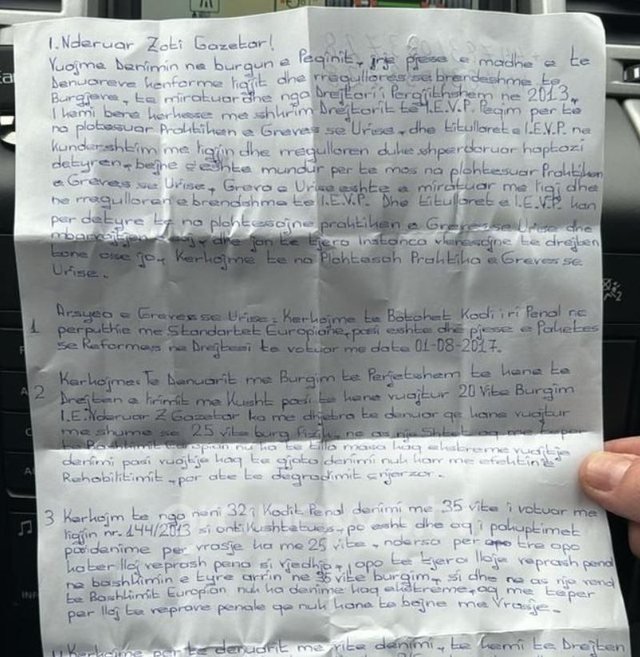 I. Nderuar Zoti Gazetar!
Vuajme Denimin ne burgun e Peqinit, nje pjese e madhe e te
Denuareve konforme ligjit dhe rregullores se brendshme te
Burgjeve, te miratuar dhe nga Drejtori i Pergjithshem ne 2013,
I kemi bere kerkese me shkrim Drejtorit te I.E.V.P. Peqin per te
na plotesuar Praktiken e Greves se Urise, dhe titullaret e I.E.V.P. ne
kundershtim me ligjin dhe rregulloren duke shperdoruar haptazi
detyren, bejne c'eshte mundur per te mos na plotesuar Praktiken
e Greves se Urise, Greva e Urise eshte e miratuar me ligj dhe
ne rregulloren e brendshme te I.E.V.P. Dhe titullaret e I.E.V.P. kan
per detyre te na plotesojne praktiken e Greves se Urise dhe
dhe jan te tjera Instanca vleresojne te drejten
tone ose jo, Kerkojme te na Plotesoh Praktika e Greves se
Urise.
Arsyeja e Greves se Urise: Kerkojme te Botohet Kodi i ri Penal ne
1 perputhje me Standartet Europiane, pasi eshte dhe pjese e Paketes
se Reformes ne Drejtesi te votuar me date 01-08-2017.
2 Kerkojme: Te Denuarit me Burgim te Perjetshem te kene te
Drejten e lirimit me Kusht pasi te kene vuajtur 20 Vite Burgim
I.E. Nderuar Z Gazetar ka me dhjetra te denuar qe kane vuajtur
me shume se 25 vite burg ne as nje Shtet aq me teper
te Bashkimit nuk ka te tilla masa kaq ekstreme vuajtje
denimi pasi vuajtja kaq te gjata denimi nuk kan me efektin e
Rehabilitimit, por ate te degradimit njerzor.
3 Kerkojm te nga neni 32 i Kodit Penal denimi me 35 vite i votuar me
ligjin nr. 144/2013 si anti Kushtetues, po esht dhe aq i pakuptimet
pasi denime per vrasje ka me 25 vite, ndersa per tre apo
kater lloj veprash pena si vjedhje, apo te tjera lloje veprash penal
ne bashkimin e tyre arrin ne 35 vite burgim, si dhe ne as nje vend
te Bashkimit Europian nuk ka denime kaq ekstreme, aq me teper
per lloj te veprave penale qe nuk kane te bejne me Vrasje.
Kerkojme per te denuarit me vite denimi, te kemi te Drejten